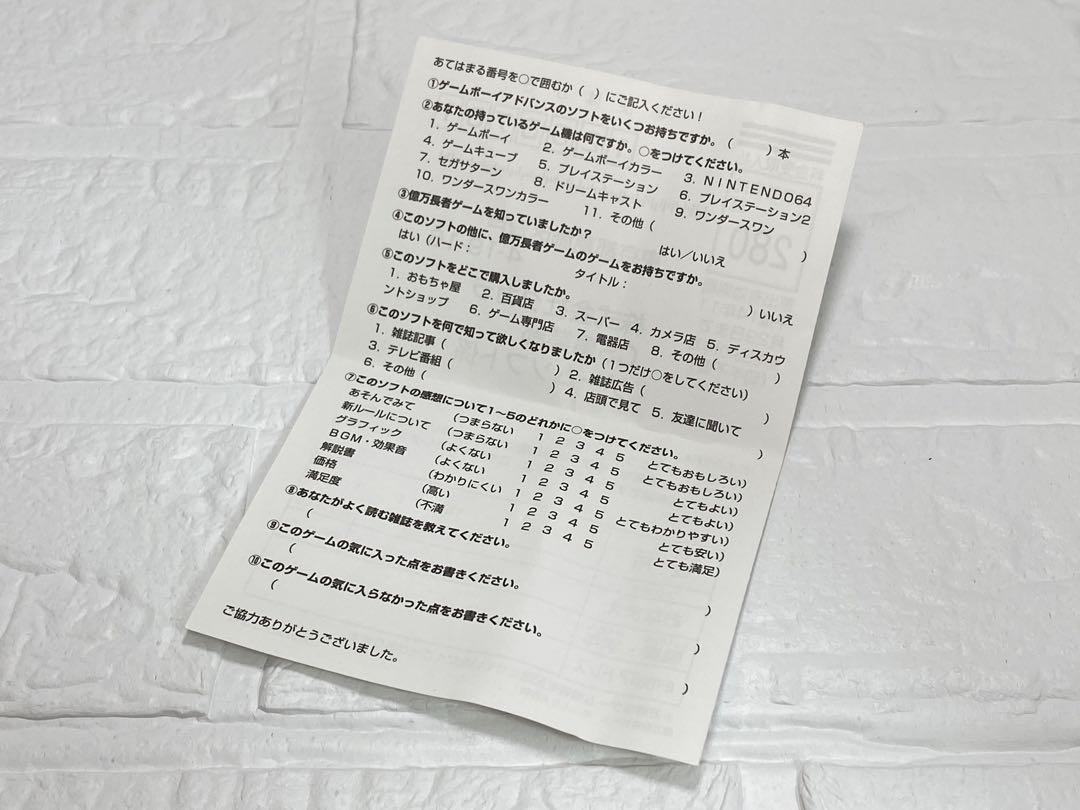 あてはまる番号を○で囲むか（　）にご記入ください！
①ゲームボーイアドバンスのソフトをいくつお持ちですか。（　　　）本
②あなたの持っているゲーム機は何ですか。○をつけてください。
1．ゲームボーイ　2．ゲームボーイカラー　3．NINTENDO64
4．ゲームキューブ　5．プレイステーション　6．プレイステーション2
7．セガサターン　8．ドリームキャスト　9．ワンダースワン
10．ワンダースワンカラー　11．その他（　　　）
③億万長者ゲームを知っていましたか？　はい／いいえ
④このソフトの他に、億万長者ゲームのゲームをお持ちですか。
はい（ハード：　　　タイトル：　　　）いいえ
⑤このソフトをどこで購入しましたか。
1．おもちゃ屋　2．百貨店　3．スーパー　4．カメラ店　5．ディスカウ
ントショップ　6．ゲーム専門店　7．電器店　8．その他（　　　）
⑥このソフトを何で知って欲しくなりましたか（1つだけ○をしてください）
1．雑誌記事（　　　）2．雑誌広告（　　　）
3．テレビ番組（　　　）4．店頭で見て　5．友達に聞いて
6．その他（　　　）
⑦このソフトの感想について1～5のどれかに○をつけてください。
あそんでみて　（つまらない　1　2　3　4　5　とてもおもしろい）
新ルールについて　（つまらない　1　2　3　4　5　とてもおもしろい）
グラフィック　（よくない　1　2　3　4　5　とてもよい）
BGM・効果音　（よくない　1　2　3　4　5　とてもよい）
解説書　（わかりにくい　1　2　3　4　5　とてもわかりやすい）
価格　（高い　1　2　3　4　5　とても安い）
満足度　（不満　1　2　3　4　5　とても満足）
⑧あなたがよく読む雑誌を教えてください。
（　　　）
⑨このゲームの気に入った点をお書きください。
（　　　）
⑩このゲームの気に入らなかった点をお書きください。
（　　　）
ご協力ありがとうございました。